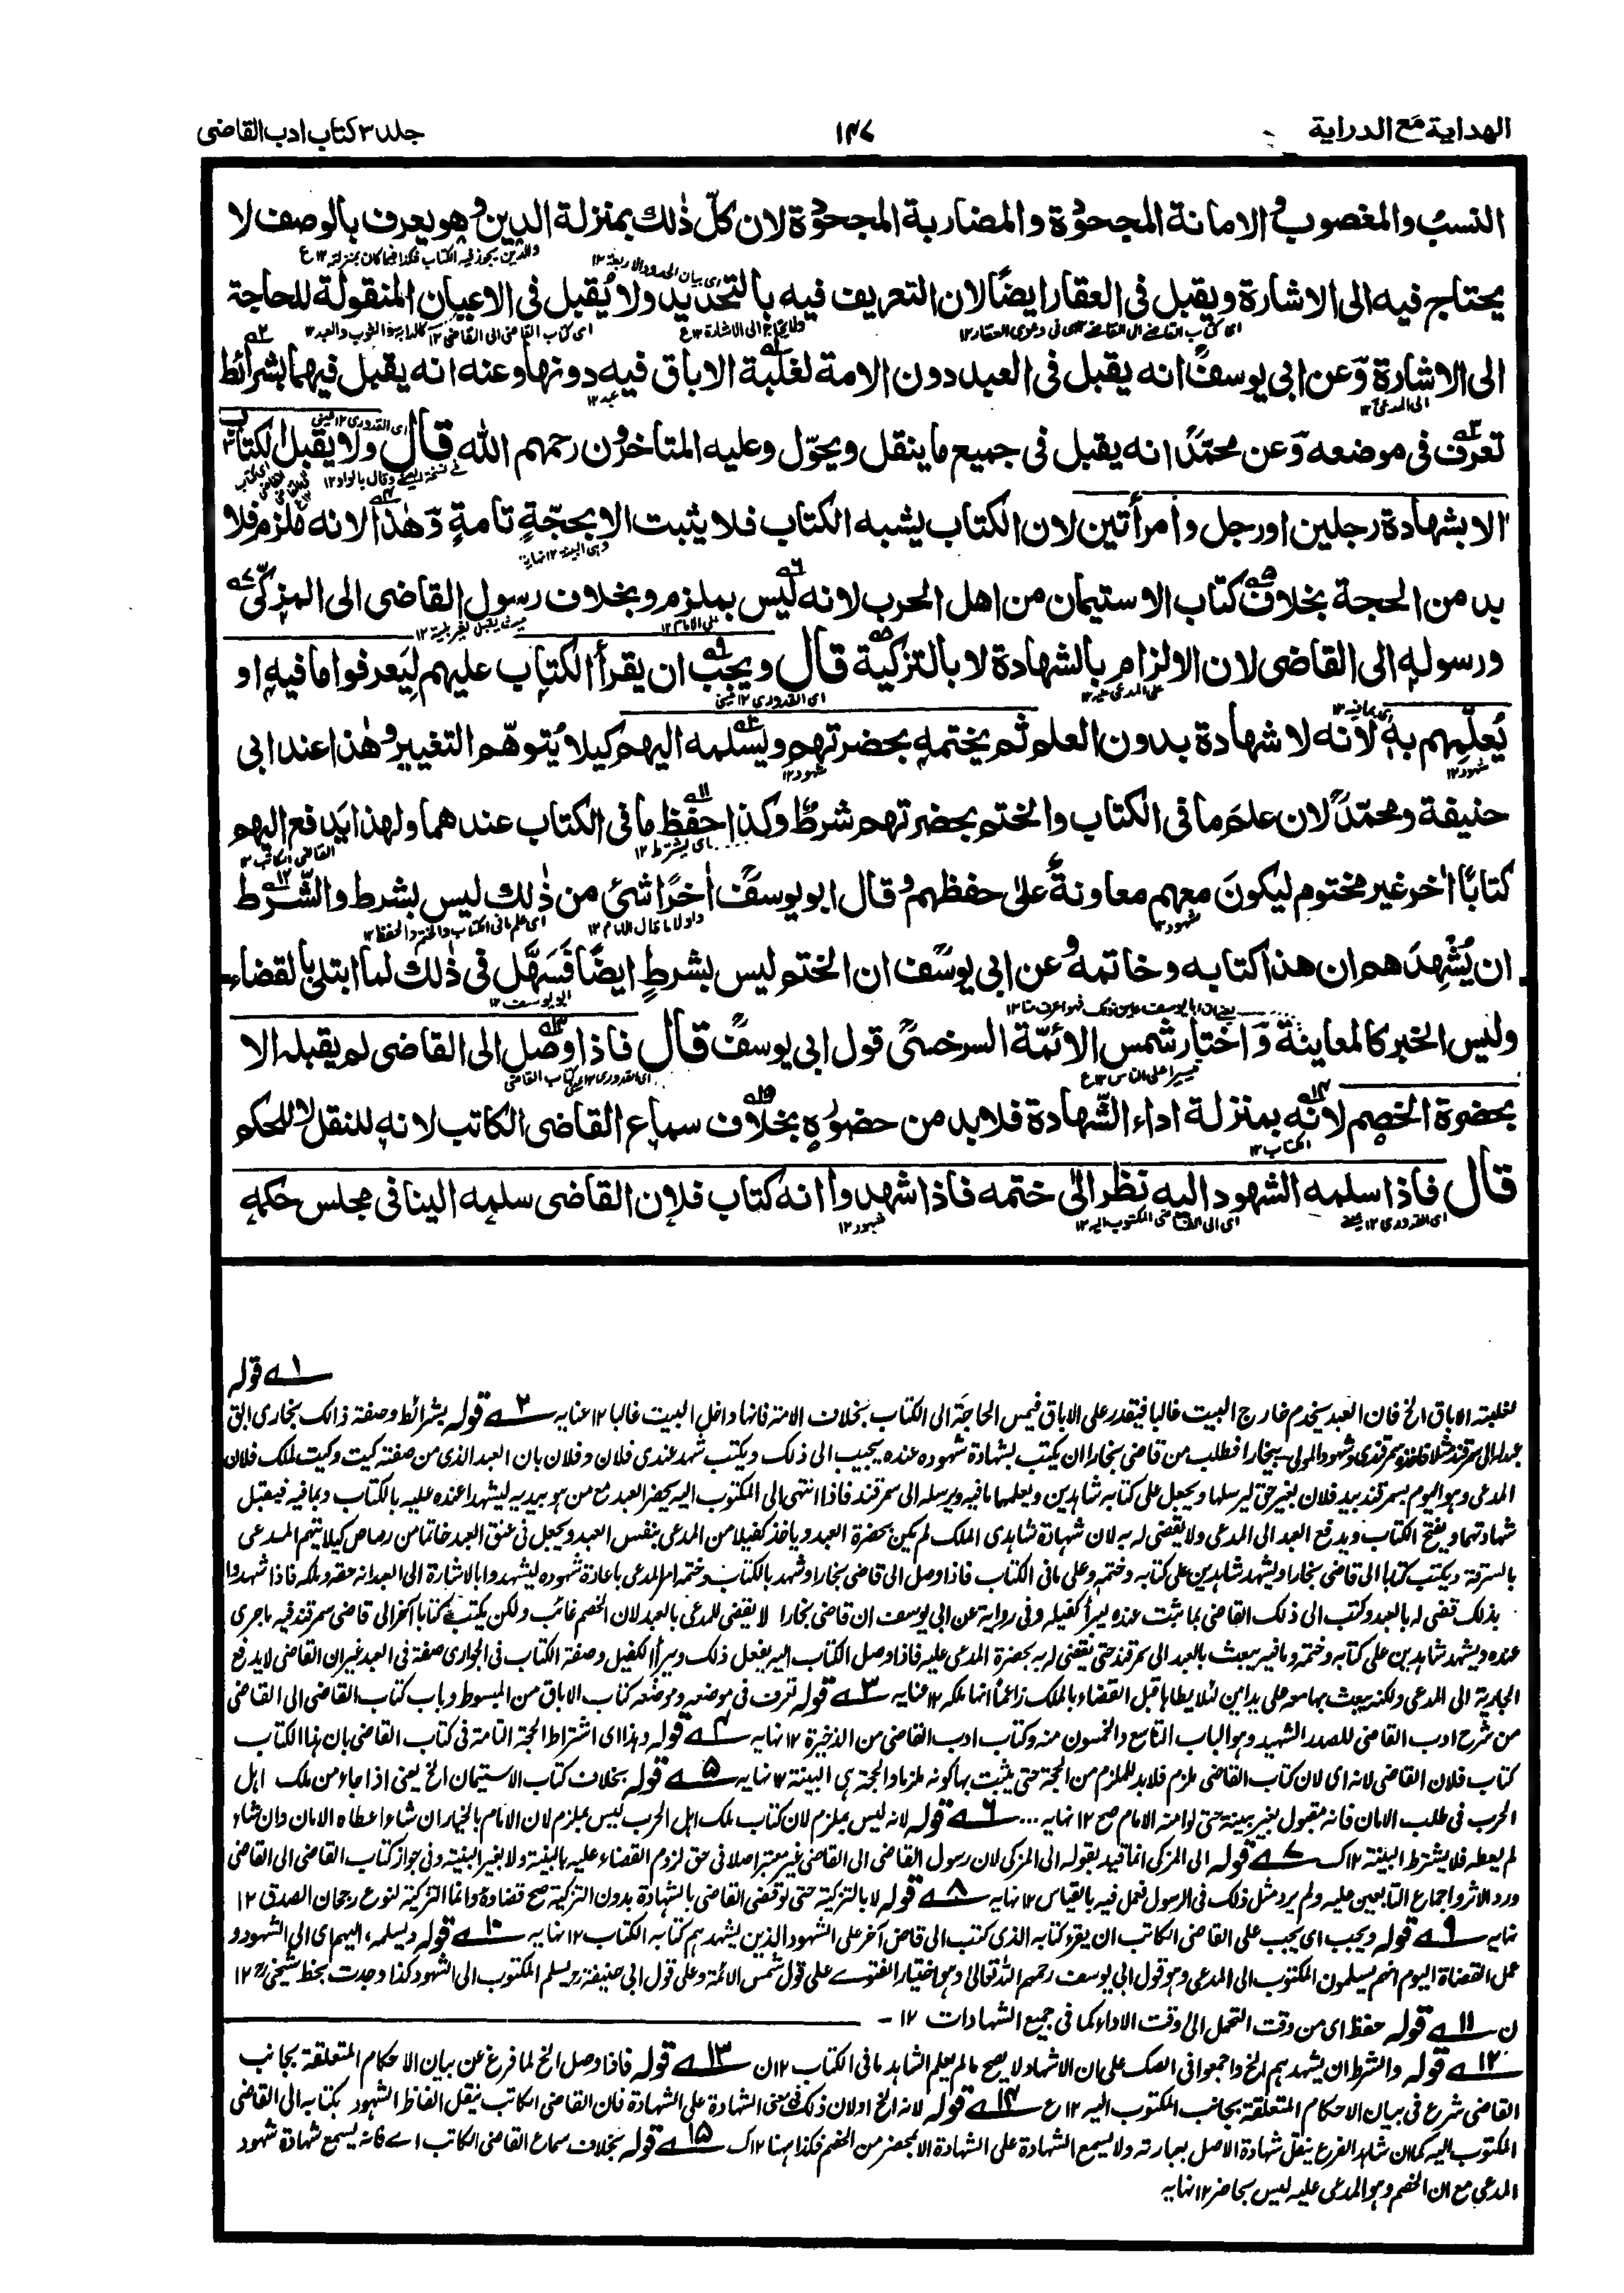 الهداية مع الدراية
١٤٧
جلد ٣ كتاب ادب القاضى
النسب والمغصوب و الامانة المجحودة والمضاربة المجحودة لان كل ذلك بمنزلة الدين وهو يعرف بالوصف لا
والدين يجوز فيه الكتاب فكذا فيما كان بمنزلته ١٢ ع
اى بيان الحدود الاربعة ١٢
يحتاج فيه الى الاشارة ويقبل فى العقار ايضًا لان التعريف فيه بالتحديد ولا يُقبل فى الاعيان المنقولة للحاجة
اى كتاب القاضى الى القاضى فى دعوى العقار ١٢
ولا يحتاج الى الاشارة ١٢ ع
اى كتاب القاضى الى القاضى ١٢
كالدابة والثوب والعبد ١٢
الى الاشارة وعن ابى يوسفؒ انه يقبل فى العبد دون الامة لغلبة الاباق فيه دونها وعنه انه يقبل فيهما بشرائط
عبد ١٢
تعرف فى موضعه وعن محمدؒ انه يقبل فى جميع ما ينقل ويحوّل وعليه المتاخرون رحمهم الله قال ولا يقبل الكتاب
اى القدورى ١٢ عينى
الا بشهادة رجلين او رجل وامرأتين لان الكتاب يشبه الكتاب فلا يثبت الا بحجّةٍ تامةٍ وهٰذا لانه ملزم فلا
وهى البينة ١٢ نهاية
بد من الحجة بخلاف كتاب الاستيمان من اهل الحرب لانه ليس بملزم وبخلاف رسول القاضى الى المزكّى
على الامام ١٢
ورسوله الى القاضى لان الالزام بالشهادة لا بالتزكية قال ويجب ان يقرأ الكتاب عليهم ليَعرفوا ما فيه او
على المدعى عليه ١٢
اى القدورى ١٢ عينى
اى بما فيه ١٢
يُعلّمهم به لانه لا شهادة بدون العلم ثم يختمه بحضرتهم ويسلمه اليهم كيلا يُتوهّم التغيير وهٰذا عند ابى
شهود ١٢
شهود ١٢
حنيفة ومحمّدؒ لان علم ما فى الكتاب والختم بحضرتهم شرط وكذا حفظ ما فى الكتاب عندهما ولهذا يدفع اليهم
اى يشترط ١٢
القاضى الكاتب ١٢
كتابًا اٰخر غير مختوم ليكونَ معهم معاونةً علىٰ حفظهم وقال ابو يوسفؒ اٰخرًا شئ من ذٰلك ليس بشرط والشّرط
شهود ١٢
اى علم ما فى الكتاب والختم والحفظ ١٢
ان يُشْهِدَهم ان هذا كتابه وخاتمه وعن ابى يوسفؒ ان الختم ليس بشرطٍ ايضًا فسَهّل فى ذٰلك لما ابتلى بالقضاء
ابو يوسف ١٢
وليس الخبر كالمعاينة واختار شمس الائمّة السرخسىؒ قول ابى يوسفؒ قال فاذا وصل الى القاضى لم يقبله الا
تيسيرا على الناس ١٢ ع
بحضرة الخصم لانه بمنزلة اداء الشّهادة فلا بد من حضوره بخلاف سماع القاضى الكاتب لانه للنقل لا للحكم
الكتاب ١٢
قال فاذا سلمه الشهود اليه نظر الى ختمه فاذا شهدوا انه كتاب فلان القاضى سلمه الينا فى مجلس حكمه
شهود ١٢
اى الى القاضى المكتوب اليه ١٢
١ قوله
لغلبة الاباق الخ فان العبد يخدم خارج البيت غالبا فيقدر على الاباق فيمس الحاجة الى الكتاب بخلاف الامة فانها داخل البيت غالبا ١٢ عنايه ٢ قوله بشرائط وصفة ذالك بخارى ابق
عبد له الى سمرقند مثلا فاخذه سمرقندى وشهود المولى ببخارا فطلب من قاضى بخارا ان يكتب بشهادة شهوده عنده يجيب الى ذلك ويكتب شهد عندى فلان وفلان بان العبد الذى من صفته كيت وكيت ملك فلان
المدعى وهو اليوم بسمرقند بيد فلان بغير حق ... ويجعل على كتابه شاهدين ويعلمهما ما فيه ويرسله الى سمرقند فاذا انتهى الى المكتوب اليه يحضر العبد مع من هو بيديه ليشهدا عنده عليه بالكتاب وبما فيه فيقبل
شهادتهما ويفتح الكتاب ويدفع العبد الى المدعى ولا يقضى له به لان شهادة شاهدى الملك لم يكن بحضرة العبد وياخذ كفيلا من المدعى بنفس العبد ويجعل فى عنق العبد خاتما من رصاص كيلا يتهم المدعى
بالسرقة ويكتب كتابا الى قاضى بخارا ويشهد شاهدين على كتابه وختمه وعلى ما فى الكتاب فاذا وصل الى قاضى بخارا وشهد بالكتاب وختمه امر المدعى باعادة شهوده ليشهدوا بالاشارة الى العبد انه حقه وملكه فاذا شهدوا
بذلك قضى له بالعبد وكتب الى ذلك القاضى بما ثبت عنده ليبرأ كفيله وفى رواية عن ابى يوسف ان قاضى بخارا لا يقضى للمدعى بالعبد لان الخصم غائب ولكن يكتب كتابا آخر الى قاضى سمرقند فيه ما جرى
عنده ويشهد شاهدين على كتابه وختمه وما فيه ويبعث بالعبد الى سمرقند حتى يقضى له به بحضرة المدعى عليه فاذا وصل الكتاب اليه يفعل ذلك ويبرأ الكفيل وصفة الكتاب فى الجوارى صفة فى العبد غير ان القاضى لا يدفع
الجارية الى المدعى ولكنه يبعث بها معه على يد امين لئلا يطأها قبل القضاء بالملك زاعما انها ملكه ١٢ عنايه ٣ قوله تعرف فى موضعه وموضعه كتاب الاباق من المبسوط وباب كتاب القاضى الى القاضى
من شرح ادب القاضى للصدر الشهيد وهو الباب التاسع والخمسون منه وكتاب ادب القاضى من الذخيرة ١٢ نهايه ٤ قوله وهذا اى اشتراط الحجة التامة فى كتاب القاضى بان هذا الكتاب
كتاب فلان القاضى لانه اى لان كتاب القاضى ملزم فلا بد للملزم من الحجة حتى يثبت بها كونه ملزما والحجة هى البينة ١٢ نهايه ٥ قوله بخلاف كتاب الاستيمان الخ يعنى اذا جاء من ملك اهل
الحرب فى طلب الامان فانه مقبول بغير بينة حتى لو امنه الامام صح ١٢ نهايه ... ٦ قوله لانه ليس بملزم لان كتاب ملك اهل الحرب ليس بملزم لان الامام بالخيار ان شاء اعطاه الامان وان شاء
لم يعطه فلا يشترط البينة ١٢ ك ٧ قوله الى المزكى انما قيد بقوله الى المزكى لان رسول القاضى الى القاضى غير معتبر اصلا فى حق لزوم القضاء عليه بالبينة ولا بغير البينة وفى جواز كتاب القاضى الى القاضى
ورد الاثر واجماع التابعين عليه ولم يرد مثل ذلك فى الرسول فعمل فيه بالقياس ١٢ نهايه ٨ قوله لا بالتزكية حتى لو قضى القاضى بالشهادة بدون التزكية صح قضاؤه وانما التزكية لنوع رجحان الصدق ١٢
نهايه ٩ قوله ويجب اى يجب على القاضى الكاتب ان يقرء كتابه الذى كتب الى قاض آخر على الشهود الذين يشهدهم كتابه الكتاب ١٢ نهايه ١٠ قوله ويسلمه اليهم اى الى الشهود و
عمل القضاة اليوم انهم يسلمون المكتوب الى المدعى وهو قول ابى يوسف رحمهم الله تعالى وهو اختيار الفتوے على قول شمس الائمة وعلى قول ابى حنيفة رح يسلم المكتوب الى الشهود كذا وجدت بخط شيخى رح ١٢
ن ١١ قوله حفظ اى من وقت التحمل الى وقت الاداء كما فى جميع الشهادات ١٢ -
١٢ قوله والشرط ان يشهدهم الخ واجمعوا فى الصك على ان الاشهاد لا يصح ما لم يعلم الشاهد ما فى الكتاب ١٢ ن ١٣ قوله فاذا وصل الخ لما فرغ عن بيان الاحكام المتعلقة بجانب
القاضى شرع فى بيان الاحكام المتعلقة بجانب المكتوب اليه ١٢ ع ١٤ قوله لانه الخ او لان ذلك فى معنى الشهادة على الشهادة فان القاضى الكاتب ينقل الفاظ الشهود بكتابه الى القاضى
المكتوب اليه كما ان شاهد الفرع ينقل شهادة الاصل بعبارته ولا يسمع الشهادة على الشهادة الا بمحضر من الخصم فكذا ههنا ١٢ ك ١٥ قوله بخلاف سماع القاضى الكاتب اے فانه يسمع شهادة شهود
المدعى مع ان الخصم وهو المدعى عليه ليس بحاضر ١٢ نهايه